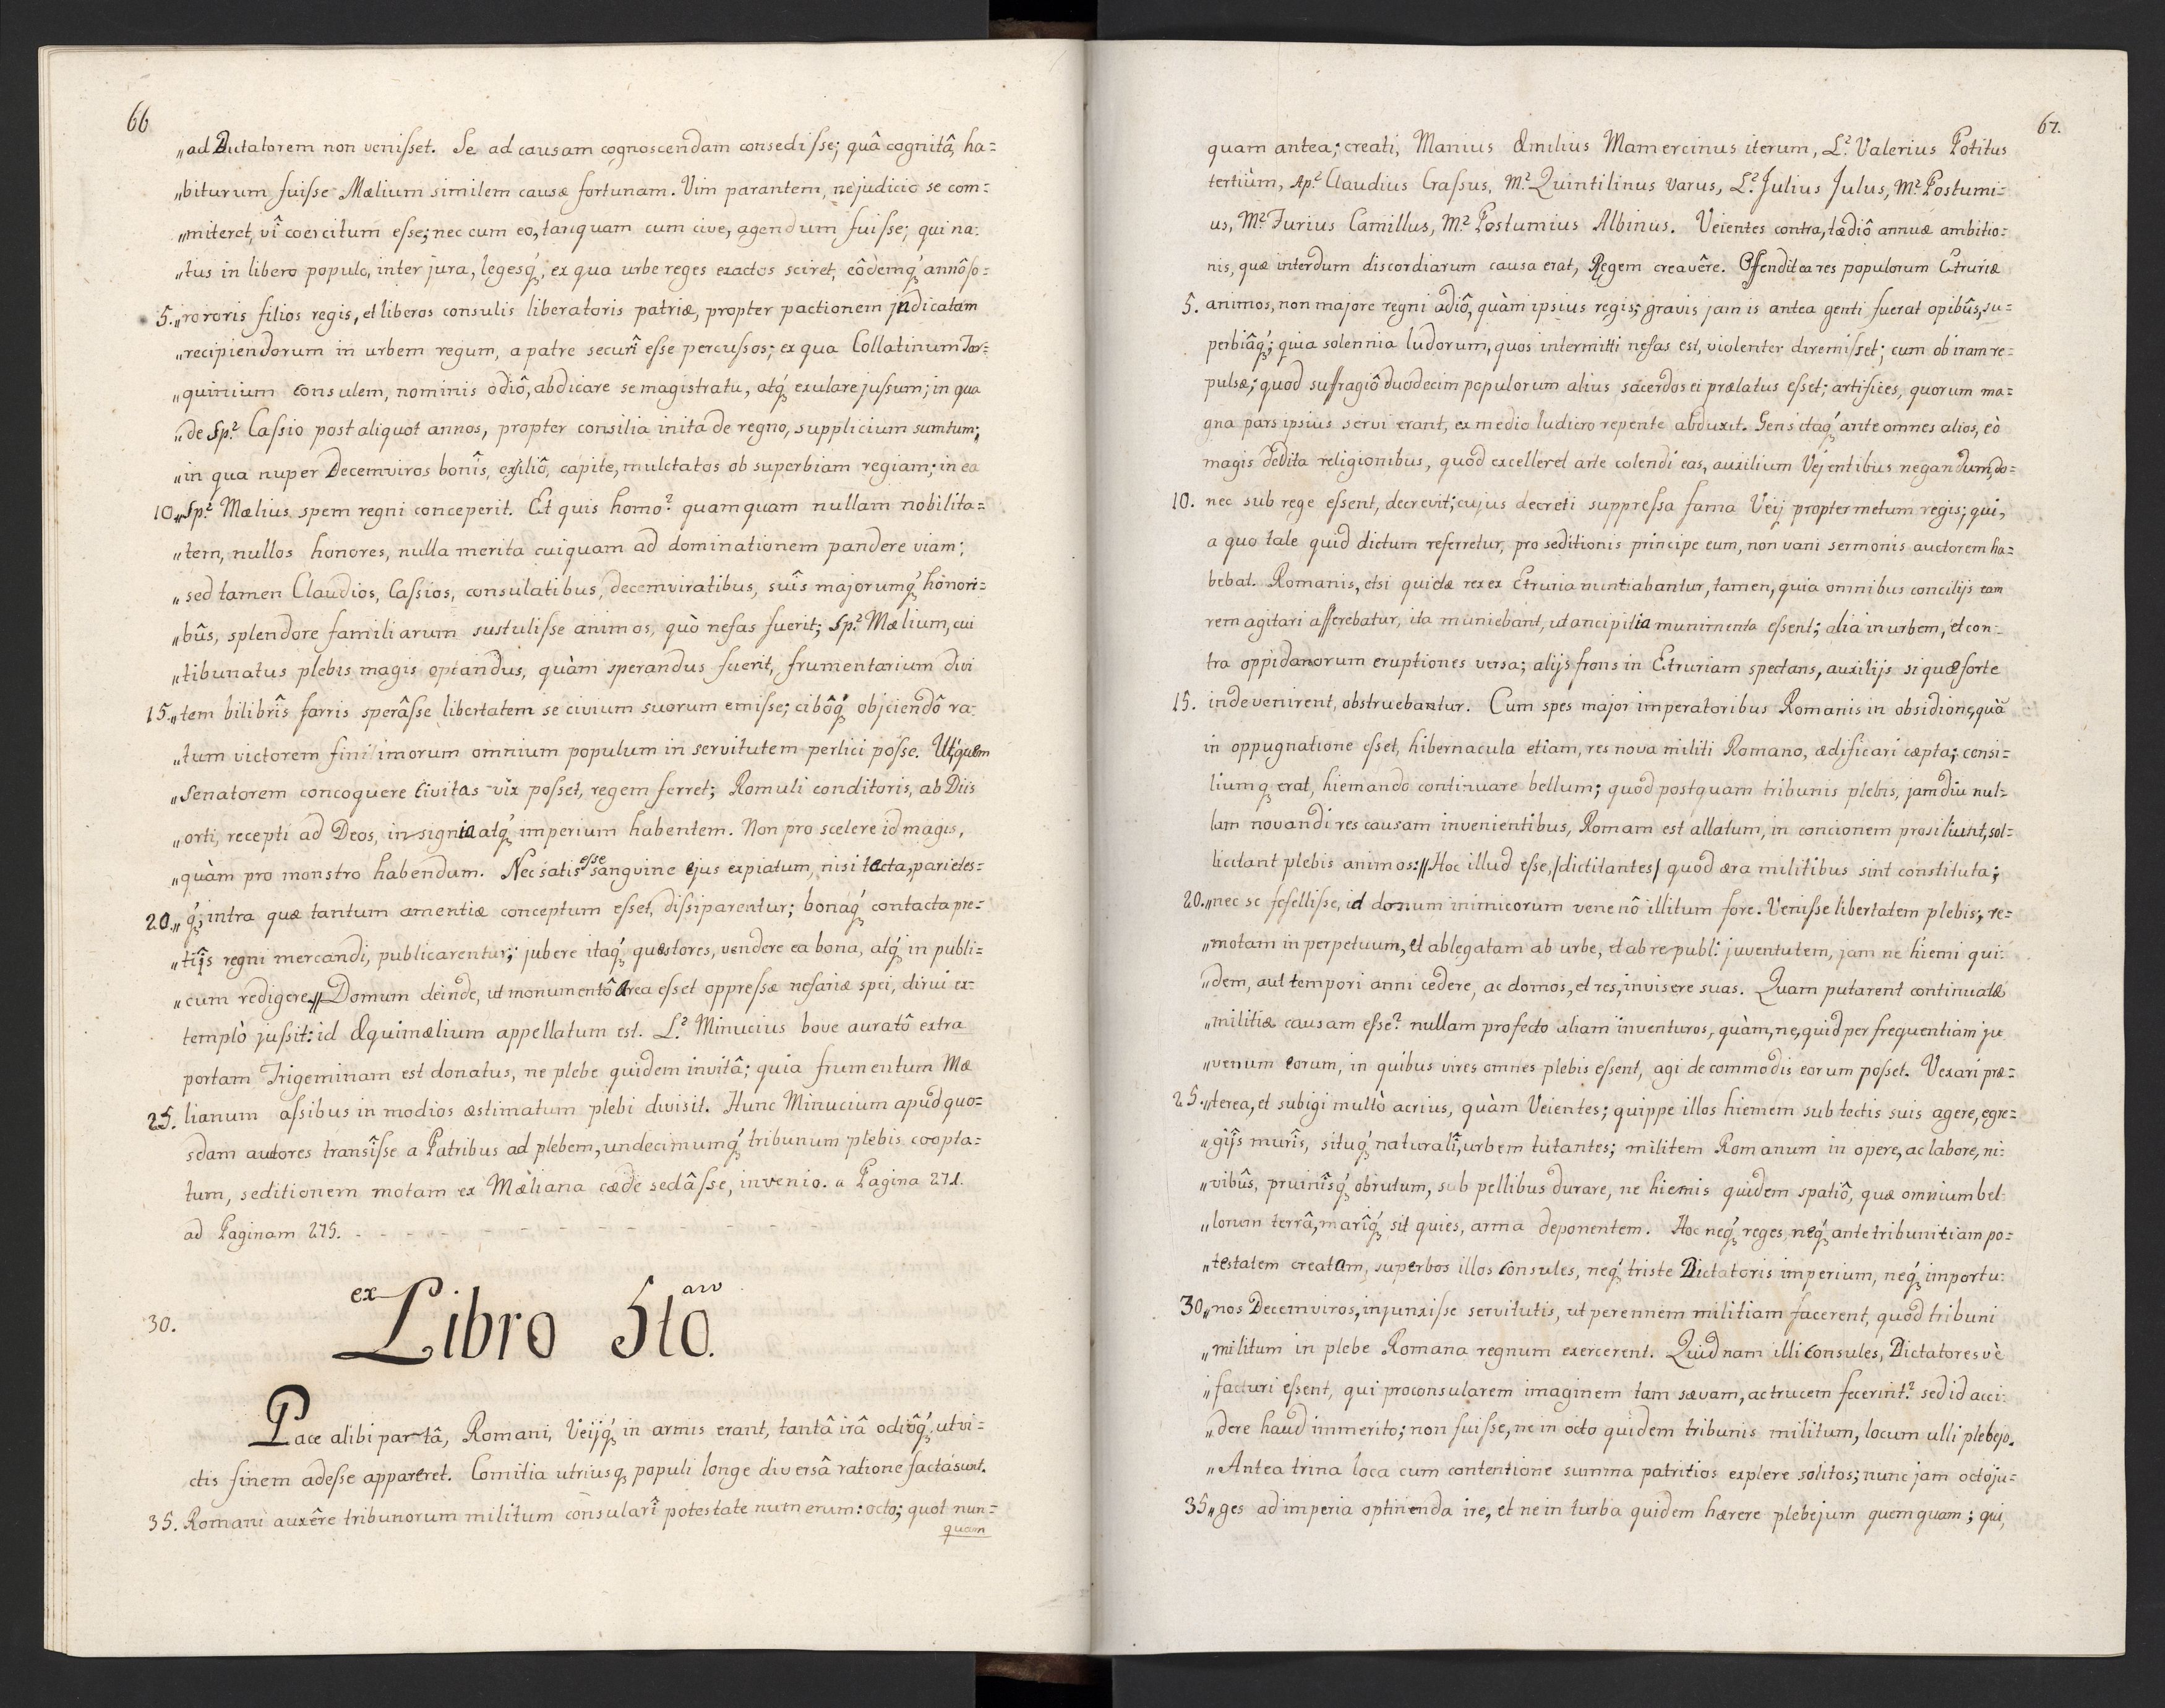 66
„ad Dictatorem non venisset. Se ad causam cognoscendam consedisse; quâ cognitâ, ha=
„biturum fuisse Mælium similem causæ fortunam. Vim parantem, ne judicio se com=
„miteret, vî coercitum esse; nec cum eo, tanquam cum cive, agendum fuisse; qui na:
„tus in libero populo, inter jura, legesq́ꝫ, ex qua urbe reges exactos sciret, eôdemq́ꝫ annô so=
5. „rororis filios regis, et liberos consulis liberatoris patriæ, propter pactionem jndicatam
„recipiendorum in urbem regum, a patre securî esse percussos; ex qua Collatinum Tar=
„quinium consulem, nominis odiô, abdicare se magistratu, atq́ꝫ exulare jussum; in qua
„de Sp? Cassio post aliquot annos, propter consilia inita de regno, supplicium sumtum;
„in qua nuper Decemviros bonîs, exiliô, capite, mulctatos ob superbiam regiam; in ea
10. „Sp? Mælius spem regni conceperit. Et quis homo? quamquam nullam nobilita=
„tem, nullos honores, nulla merita cuiquam ad dominationem pandere viam;
„sed tamen Claudios, Cassios, consulatibus, decemviratibus, suîs majorumq́ꝫ honori=
„bûs, splendore familiarum sustulisse animos, quò nefas fuerit; Sp? Mælium, cui
„tibunatus plebis magis optandus, quàm sperandus fuerit, frumentarium divi
15. „tem bilibrîs farris sperâsse libertatem se civium suorum emisse; cibôq́ꝫ objciendô ra:
„tum victorem finitimorum omnium populum in servitutem perlici posse. Ut, quem
„Senatorem concoquere Civitas vix posset, regem ferret; Romuli conditoris, ab Diis
„orti, recepti ad Deos, insignia atq́ꝫ imperium habentem. Non pro scelere id magis,
„quàm pro monstro habendum. Nec satis esse sanguine ejus expiatum, nisi tecta, parietes=
20. „q́ꝫ, intra quæ tantum amentiæ conceptum esset, dissiparentur; bonaq́ꝫ contacta pre=
„tiîs regni mercandi, publicarentur; jubere itaq́ꝫ quæstores, vendere ea bona, atq́ꝫ in publi=
„cum redigere.// Domum deinde, ut monumentô area esset oppressæ nefariæ spei, dirui ex=
templò jussit: id Æquimælium appellatum est. L? Minucius bove auratô extra
portam Trigeminam est donatus, ne plebe quidem invitâ; quia frumentum Mæ
25. lianum assibus in modios æstimatum plebi divisit. Hunc Minucium apud quo=
sdam autores transîsse a Patribus ad plebem, undecimumq́ꝫ tribunum plebis coopta=
tum, seditionem motam ex Mæliana cæde sedâsse, invenio. a Pagina 271.
ad Paginam 275. - - - - - - - - - - - - -
30. ex Libro 5to. aro
Pace alibi partâ, Romani, Veijq́ꝫ in armis erant, tantâ irâ odiôq́ꝫ, ut vi=
ctis finem adesse appareret. Comitia utriusqꝫ populi longe diversâ ratione facta sunt.
35. Romani auxêre tribunorum militum consularî potestate numerum: octo; quot nun=
quam
67.
quam antea; creati, Manius Æmilius Mamercinus iterum, L? Valerius Potitus
tertiùm, Ap? Claudius Crassus, M? Quintilinus Varus, L? Julius Julus, M? Postumi=
us, M? Furius Camillus, M? Postumius Albinus. Veientes contra, tædiô annuæ ambitio=
nis, quæ interdum discordiarum causa erat, Regem creavêre. Offendit ea res populorum Etruriæ
5. animos, non majore regni odiô, quàm ipsius regis; gravis jam is antea genti fuerat opibûs, su=
perbiâq́ꝫ; quia solennia ludorum, quos intermitti nefas est, violenter diremisset; cum ob iram re=
pulsæ; quod suffragiô duodecim populorum alius sacerdos ei prælatus esset; artifices, quorum ma=
gna pars ipsius servi erant, ex medio ludicro repente abduxit. Gens itaq́ꝫ ante omnes alios, eò
magis dedita religionibus, quòd excelleret arte colendi eas, auxilium Vejentibus negandum, do=
10. nec sub rege essent, decrevit; cujus decreti suppressa fama Veij propter metum regis; qui,
a quo tale quid dictum referretur, pro seditionis principe eum, non vani sermonis auctorem ha=
bebat. Romanis, etsi quietæ res ex Etruria nuntiabantur, tamen, quia omnibus concilijs eam
rem agitari afferebatur, ita muniebant, ut ancipitia munimenta essent; alia in urbem, et con=
tra oppidanorum eruptiones versa; alijs frons in Etruriam spectans, auxilijs si quæ forte
15. inde venirent, obstruebantur. Cum spes major imperatoribus Romanis in obsidione, quà
in oppugnatione esset, hibernacula etiam, res nova militi Romano, ædificari cæpta; consi=
liumqꝫ erat, hiemando continuare bellum; quòd postquam tribunis plebis, jamdiu nul=
lam novandi res causam invenientibus, Romam est allatum, in concionem prosiliunt, sol=
licitant plebis animos: // Hoc illud esse, /dictitantes/ quòd æra militibus sint constituta;
20. „nec se fefellisse, id donum inimicorum venenô illitum fore. Venisse libertatem plebis; re=
„motam in perpetuum, et ablegatam ab urbe, et ab republ: juventutem, jam ne hiemi qui:
„dem, aut tempori anni cedere, ac domos, et res, invisere suas. Quam putarent continuatæ
„militiæ causam esse? nullam profecto aliam inventuros, quàm, ne, quid per frequentiam ju
„venum eorum, in quibus vires omnes plebis essent, agi de commodis eorum posset. Vexari præ=
25. „terea, et subigi multò acrius, quàm Veientes; quippe illos hiemem sub tectis suis agere, egre=
„gijs murîs, situq́ꝫ naturalî, urbem tutantes; militem Romanum in opere, ac labore, ni:
„vibûs, pruinîsq́ꝫ obrutum, sub pellibus durare, ne hiemis quidem spatiô, quæ omnium bel:
„lorum terrâ, marîq́ꝫ sit quies, arma deponentem. Hoc neq́ꝫ reges, neq́ꝫ ante tribunitiam po=
„testatem creatam, superbos illos consules, neq́ꝫ triste Dictatoris imperium, neq́ꝫ importu:
30. „nos Decemviros, injunxisse servitutis, ut perennem militiam facerent, quòd tribuni
„militum in plebe Romana regnum exercerent. Quidnam illi Consules, Dictatoresvè
„facturi essent, qui proconsularem imaginem tam sævam, ac trucem fecerint? sed id acci:
„dere haud immerito; non fuisse, ne in octo quidem tribunis militum, locum ulli plebejo.
„Antea trina loca cum contentione summa patritios explere solitos; nunc jam octoju=
35. „ges ad imperia optinenda ire, et ne in turba quidem hærere plebejum quemquam; qui,